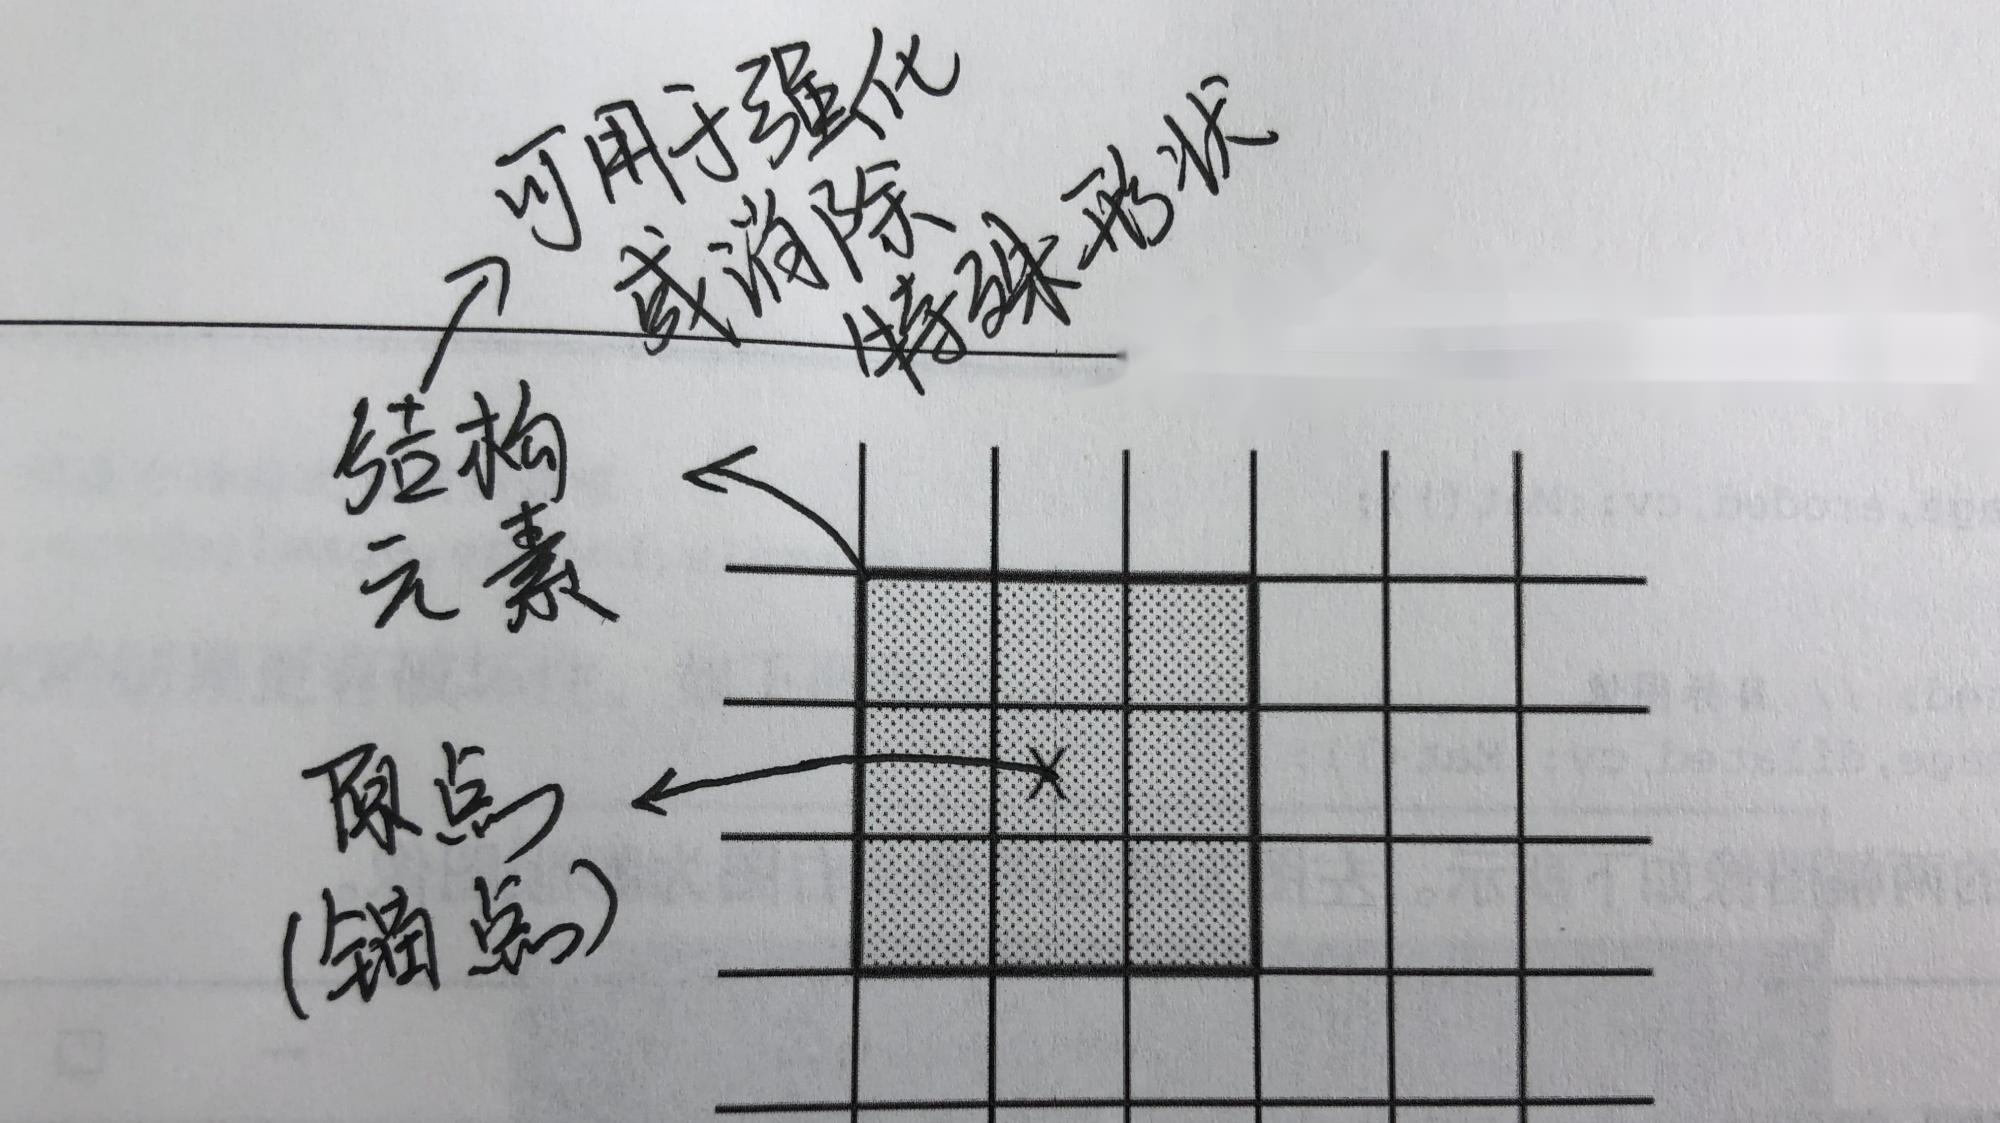 可用于强化
或消除
特殊形状
结构
元素
原点
(锚点)